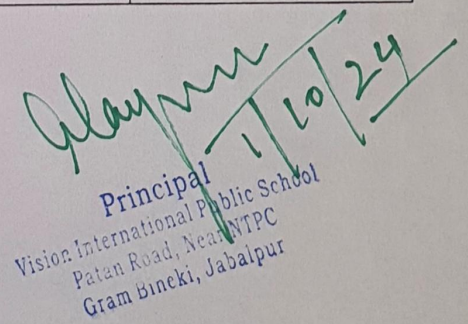 1/10/24
Principal
Vision International Public School
Patan Road, Near NTPC
Gram Bineki, Jabalpur